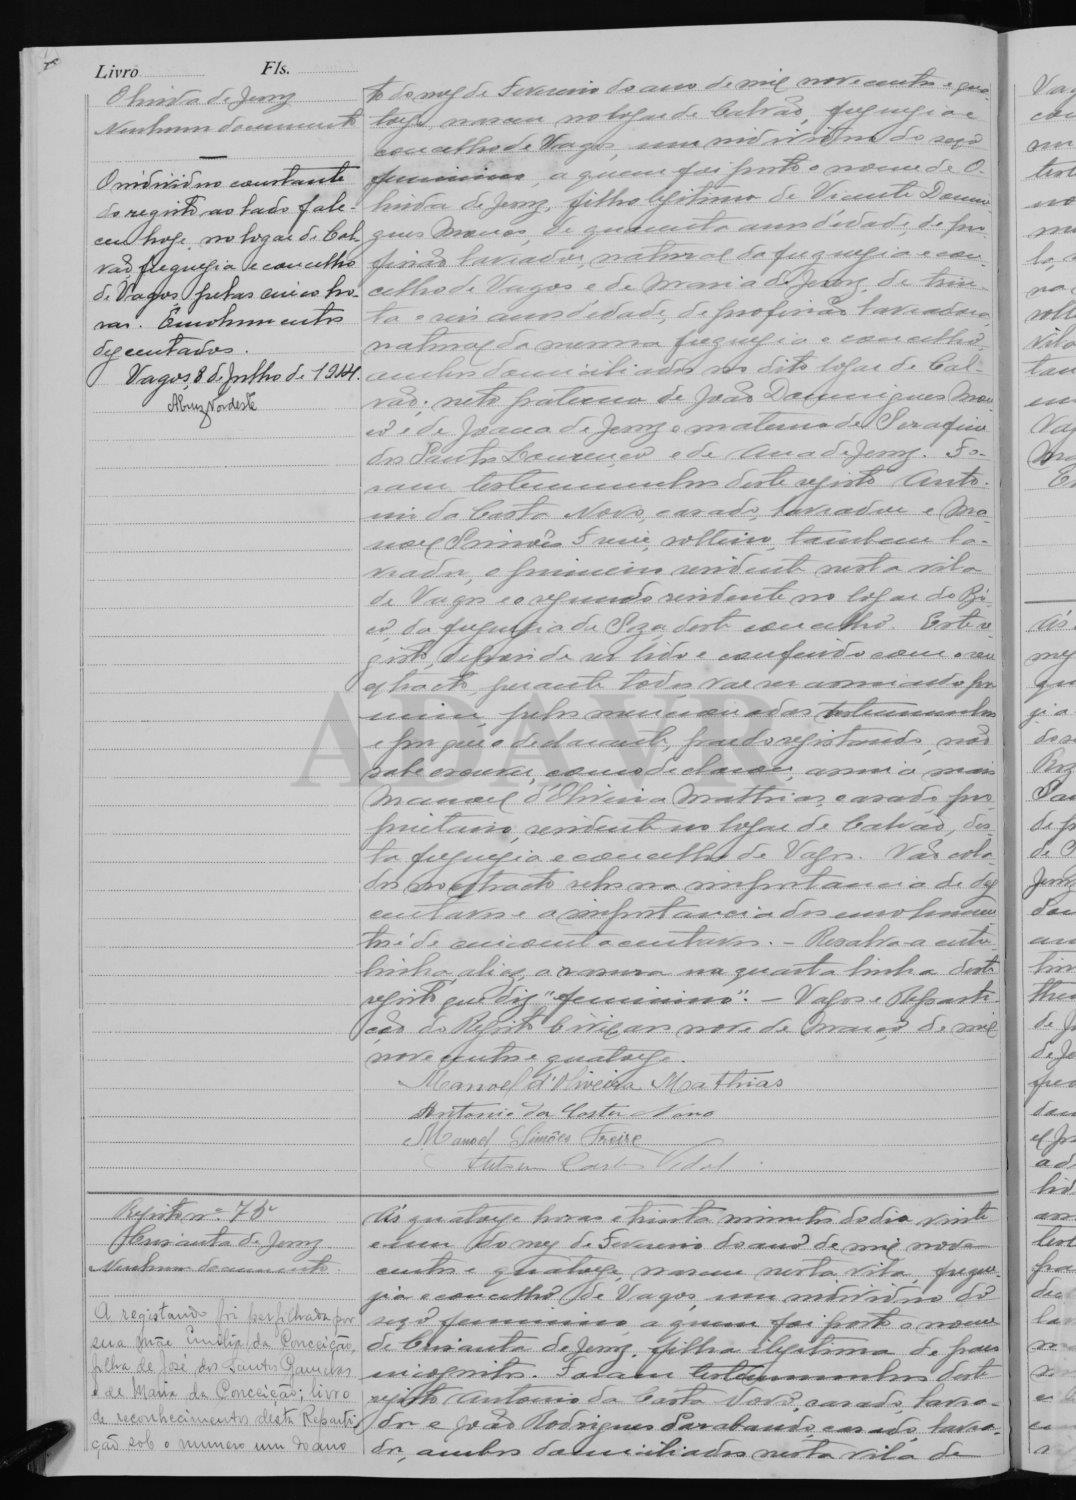 Livro Fls.
Olinda de Jesus
Nenhum documento
O individuo constante
do registo ao lado fale-
ceu hoje, no logar de Cal-
vão, freguesia e concelho
de Vagos, pelas cinco ho-
ras. Emolumentos
dez centavos.
Vagos, 8 de Julho de 1914.
to do mez de Fevereiro do ano de mil nove centos e qua-
torze, nasceu no logar de Calvão, freguesia e
concelho de Vagos, um individuo do sexo
feminino, a quem foi posto o nome de O-
linda de Jesus, filho legitimo de Vicente Domin-
gues Mouco, de quarenta anos d'edade, de pro-
fissão lavrador, natural da freguesia e con-
celho de Vagos e de Maria de Jesus, de trin-
ta e seis anos d'edade, de profissão lavradora,
natural da mesma freguesia e concelho,
ambos domiciliados no dito logar de Cal-
vão; neto paterno de João Domingues Mou-
co e de Joana de Jesus e materno de Serafim
dos Santos Lourenço e de Ana de Jesus. Fo-
ram testemunhas deste registo Anto-
nio da Costa Novo, casado, lavrador e Ma-
noel Simões Freire, solteiro, tambem la-
vrador, o primeiro residente nesta vila
de Vagos e o segundo residente no logar do
da freguesia de Soza, deste concelho. Este re-
gisto, depois de ser lido e conferido com o seu
extracto, perante todos vae ser assinado por
mim, pelas mencionadas testemunhas
e porque o declarante, pae do registando, não
sabe escrever, como declarou, assina mais
Manoel d'Oliveira Mathias, casado, pro-
prietario, residente no logar de Calvão, des-
ta freguesia e concelho de Vagos. Vão cola-
dos no extracto selos na importancia de dez
centavos e a importancia dos emolumen-
tos é de cincoenta centavos. - Resalvo a entre-
linha, aliaz, a rasura na quarta linha deste
registo que diz "feminino". - Vagos e Reparti-
ção do Registo Civil, aos nove de Março de mil
nove centos e quatorze.
Manoel d'Oliveira Mathias
Antonio da Costa Novo
Manoel Simões Freire
Vidal
ADAVR
Registo nº 75
de Jesus
Nenhum documento
A registando foi perfilhada por
sua mãe Emilia da Conceição,
filha de José dos Santos
e de Maria da Conceição; livro
de reconhecimentos desta Reparti-
ção sob o numero um do ano
Ás quatorze horas e trinta minutos do dia vinte
e um do mez de Fevereiro do ano de mil nove
centos e quatorze, nasceu nesta vila, fregue-
sia e concelho de Vagos, um individuo do
sexo feminino, a quem foi posto o nome
de de Jesus, filha ilegitima de paes
incognitos. Foram testemunhas deste
registo Antonio da Costa Novo, casado, lavra-
dor e João Rodrigues Sarabando, casado, lavra-
dor, ambos domiciliados nesta vila de